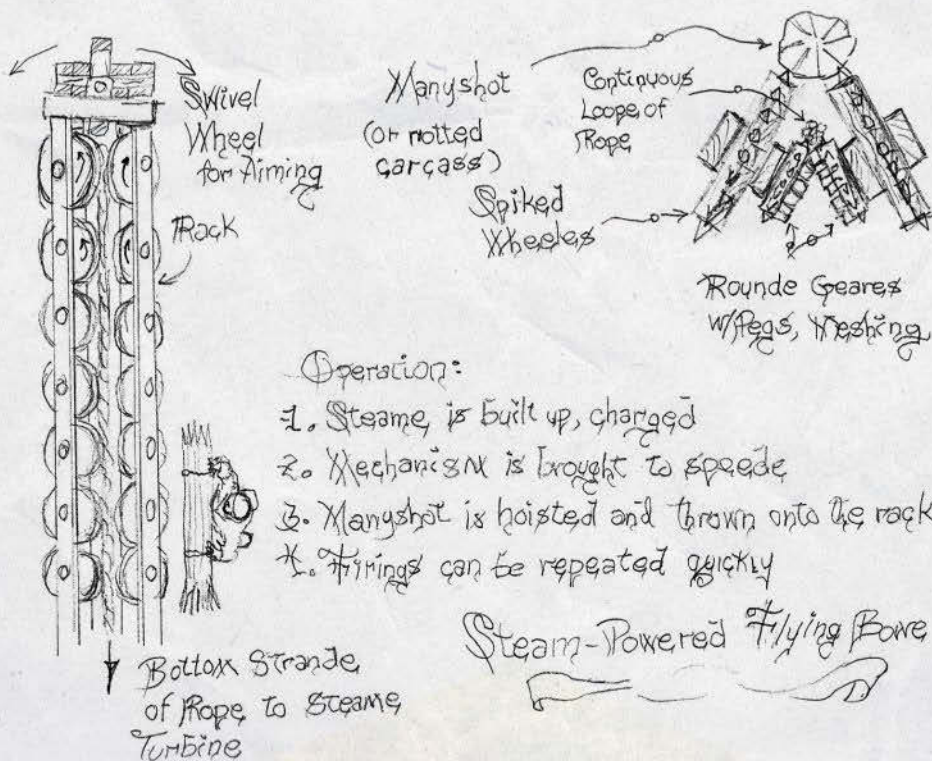 Swivel
Wheel
for Aiming
Rack
Manyshot
(or rotted
carcass)
Continuous
Loope of
Rope
Spiked
Wheeles
Rounde Geares
w/Pegs, Meshing
Operation:
1. Steame is built up, charged
2. Mechanism is brought to speede
3. Manyshot is hoisted and thrown onto the rack
4. Firings can be repeated quickly
Steam-Powered Flying Bowe
Bottom Strande
of Rope to Steame
Turbine